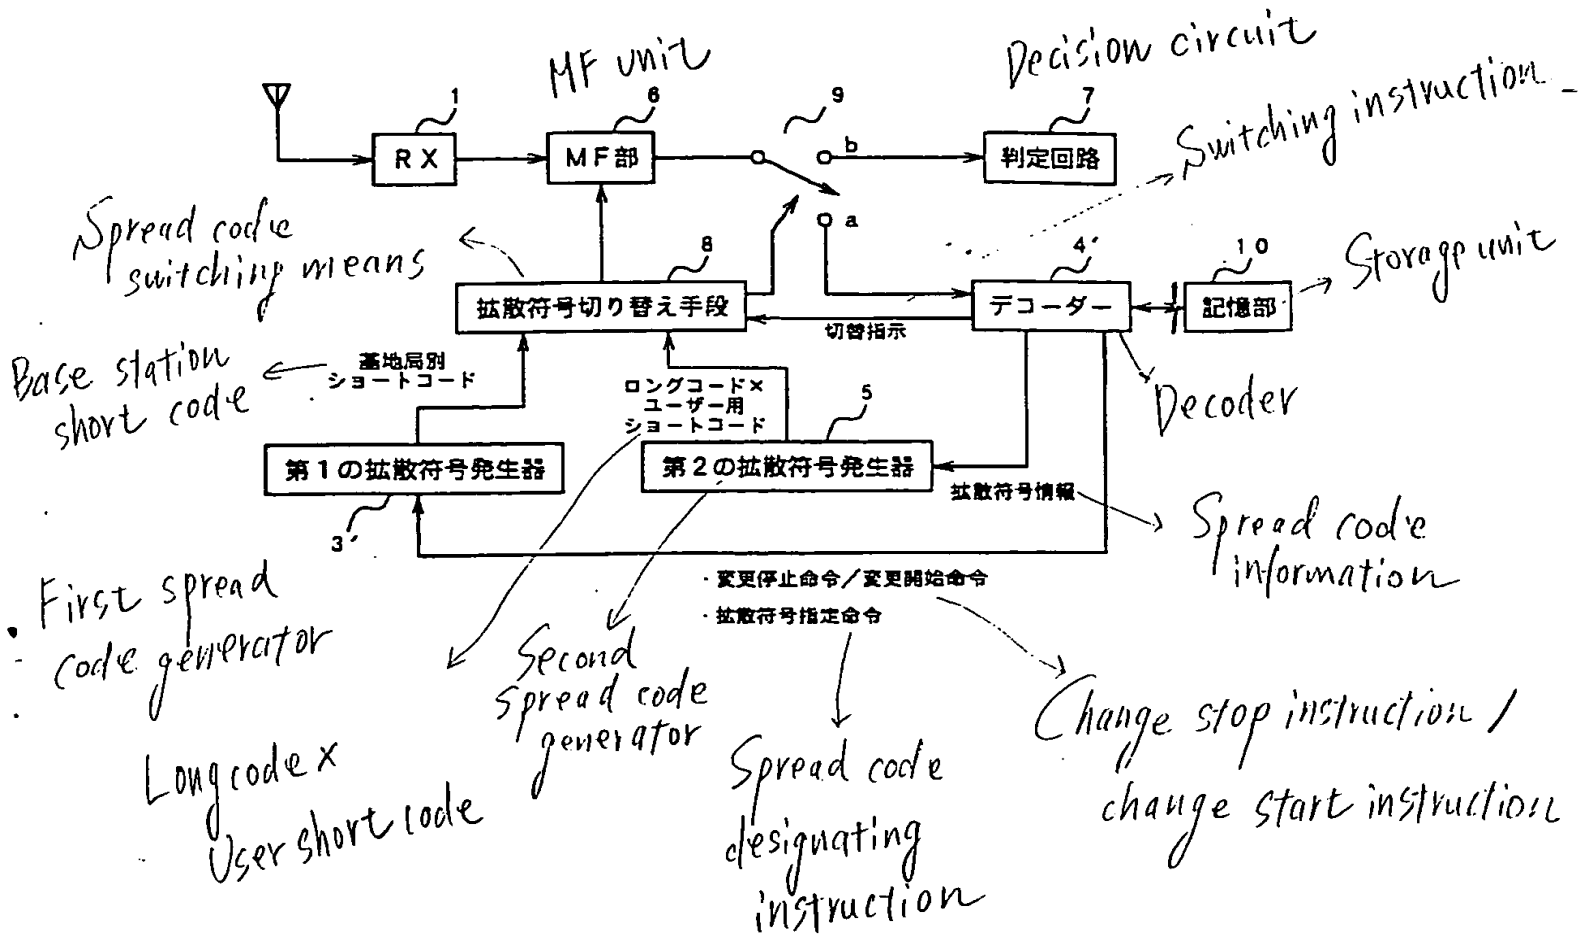 MF unit
Decision circuit
1
6
9
7
Switching instruction
RX
MF部
b
判定回路
a
Spread code
switching means
8
4'
10
Storage unit
拡散符号切り替え手段
デコーダー
記憶部
切替指示
Base station
short code
基地局別
ショートコード
ロングコード×
ユーザー用
ショートコード
5
Decoder
第1の拡散符号発生器
第2の拡散符号発生器
拡散符号情報
3'
Spread code
information
・変更停止命令/変更開始命令
・拡散符号指定命令
First spread
code generator
Second
spread code
generator
Long code ×
User short code
Spread code
designating
instruction
Change stop instruction /
change start instruction